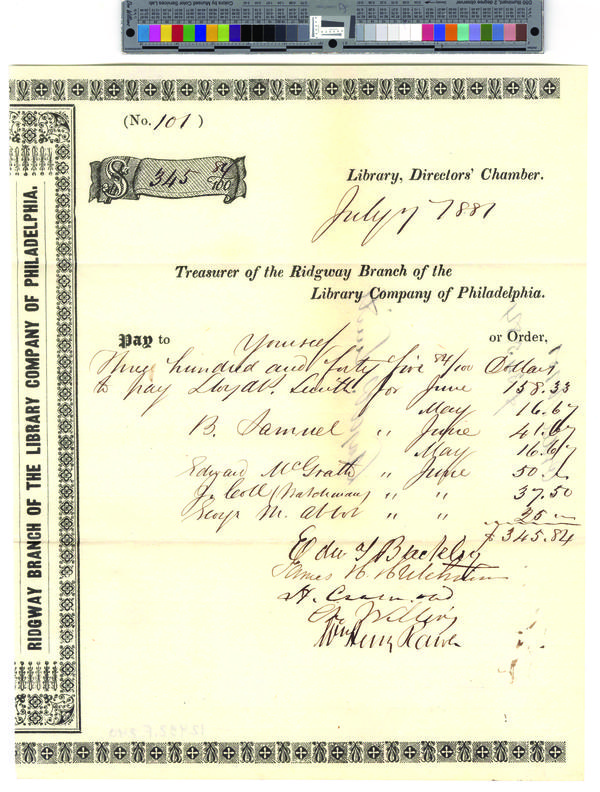 (No. 101)
$ 345 84/100
Library, Directors' Chamber.
July 7 1881
Treasurer of the Ridgway Branch of the
Library Company of Philadelphia.
Pay to Yourself or Order,
Three hundred and forty five 84/100 Dollars
to pay Lloyd P. Smith for June 158.33
May 16.67
B. Samuel " June 41.67
May 16.67
Edward McGrath " June 50
J. Coll (Watchman) " " 37.50
George M. Abbot " " 25
$345.84
James H. Hutchinson
Wm Henry Rawle
RIDGWAY BRANCH OF THE LIBRARY COMPANY OF PHILADELPHIA.